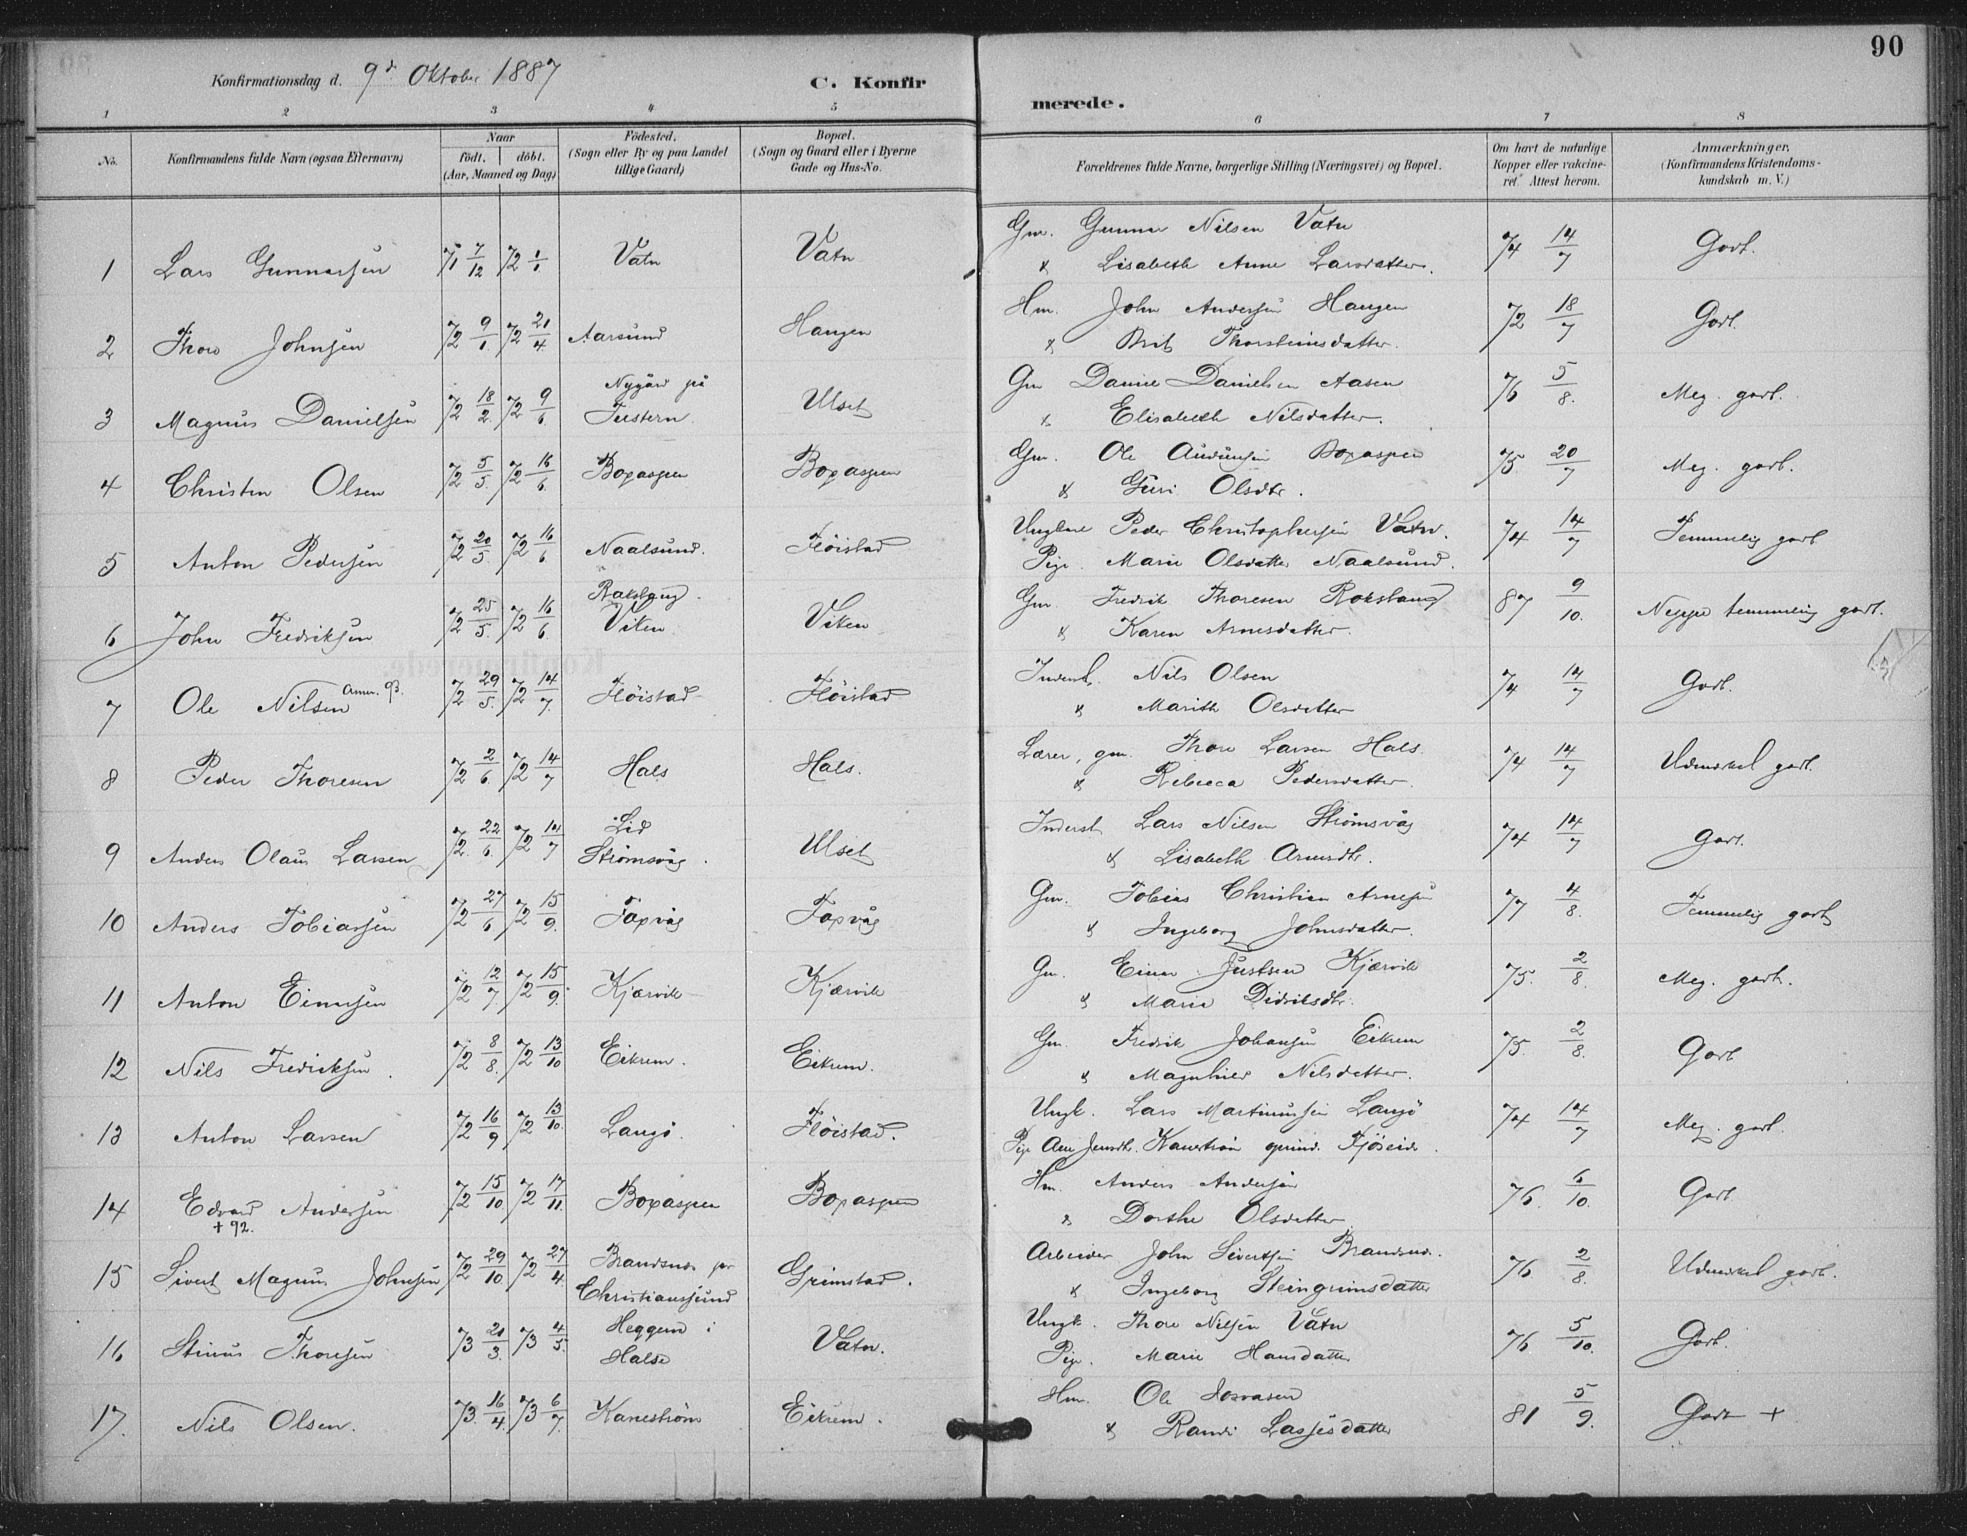 90
Konfirmationsdag d. 9d Oktober 1887
C. Konfirmerede.
1 2 3 4 5 6 7 8
No. | Konfirmandens fulde Navn (ogsaa Efternavn) | Naar født. | døbt. (Aar, Maaned og Dag) | Födested. (Sogn eller By og paa Landet tillige Gaard) | Bopæl. (Sogn og Gaard eller i Byerne Gade og Hus-No. | Forældrenes fulde Navne, borgerlige Stilling (Næringsvei) og Bopæl. | Om havt de naturlige Kopper eller vakcineret? Attest herom. | Anmærkninger. (Konfirmandens Kristendomskundskab m. V.)
1 Lars Gunnarsen 71 7/12 72 1/1 Vatn Vatn Gm. Gunnar Nilsen Vatn 74 14/7 Godt.
& Lisabeth Anne Larsdatter.
2 Thore Johnsen 72 9/1 72 21/4 Aarsund Haugen Hm. John Andersen Haugen 72 18/7 Godt.
& Brit Thorsteinsdatter.
3 Magnus Danielsen 72 18/2 72 9/6 Nygård på Tustern Ulset Gm Daniel Danielsen Aasen 76 5/8 Meg. godt.
& Elisabeth Nilsdatter.
4 Christen Olsen 72 5/5 72 16/6 Boxaspen Boxaspen Gm. Ole Audunsen Boxaspen 75 20/7 Meg. godt.
& Guri Olsdtr.
5 Anton Pedersen 72 20/5 72 16/6 Naalsund. Fløistad Ungkarl Peder Christophersen Vatn. 74 14/7 Temmelig godt
Pige. Marie Olsdatter Naalsund.
6 John Fredriksen 72 25/5 72 16/6 Rokstang Viken Viken Gm Fredrik Thoresen Rokstang 87 9/10 Neppe temmelig godt.
& Karen Arnesdatter.
7 Ole Nilsen Amer. 93. 72 29/5 72 14/7 Fløistad Fløistad Inderst. Nils Olsen 74 14/7 Godt.
& Marith Olsdatter
8 Peder Thoresen 72 2/6 72 14/7 Hals Hals. Lærer, gm. Thore Larsen Hals. 74 14/7 Udmerket godt.
& Rebecca Pedersdatter.
9 Anders Olaus Larsen 72 22/6 72 14/7 Lid Strømsvåg. Ulset Inderst Lars Nilsen Strømsvåg 74 14/7 Godt.
& Lisabeth Arnesdtr.
10 Anders Tobiassen 72 27/6 72 15/9 Foxvåg Foxvåg Gm. Tobias Christian Arnesen 77 4/8 Temmelig godt
& Ingeborg Johnsdatter.
11 Anton Einarsen 72 12/7 72 15/9 Kjærvik Kjærvik Gm. Einar Justsen Kjærvik 75. 2/8 Meg. godt.
& Marie Didriksdtr.
12 Nils Fredriksen. 72 8/8 72 13/10 Eikrem. Eikrem. Gm. Fredrik Johansen Eikrem 75. 2/8 Godt
& Magnhild Nilsdatter.
13 Anton Larsen 72 16/9 72 13/10 Langø. Fløistad. Ungk. Lars Martinussen Langø 74 14/7 Meg. godt.
Pige Ane Jensdtr. Kanestrøm oprind. Fjøseid.
14 Edvard Andersen 72 15/10 72 17/11 Boxaspen Boxaspen Hm. Anders Andersen 76. 6/10 Godt.
+ 92. & Dorthe Olsdatter
15 Sivert Magnus Johnsen 72 29/10 72 27/4 Brandsnes pr Christianssund Grimstad. Arbeider John Sivertsen Brandsnes. 76 2/8 Udmerket godt.
& Ingeborg Steingrimsdatter
16 Stinus Thoresen 73 21/3 73 4/5 Heggem i Halse Vatn. Ungk. Thore Nilsen Vatn 76 5/10 Godt.
Pige. Marie Hansdatter
17. Nils Olsen. 73 16/4 73 6/7 Kanestrøm Eikrem. Hm. Ole Josvasen 81 5/9 Godt +
& Randi Lassesdatter